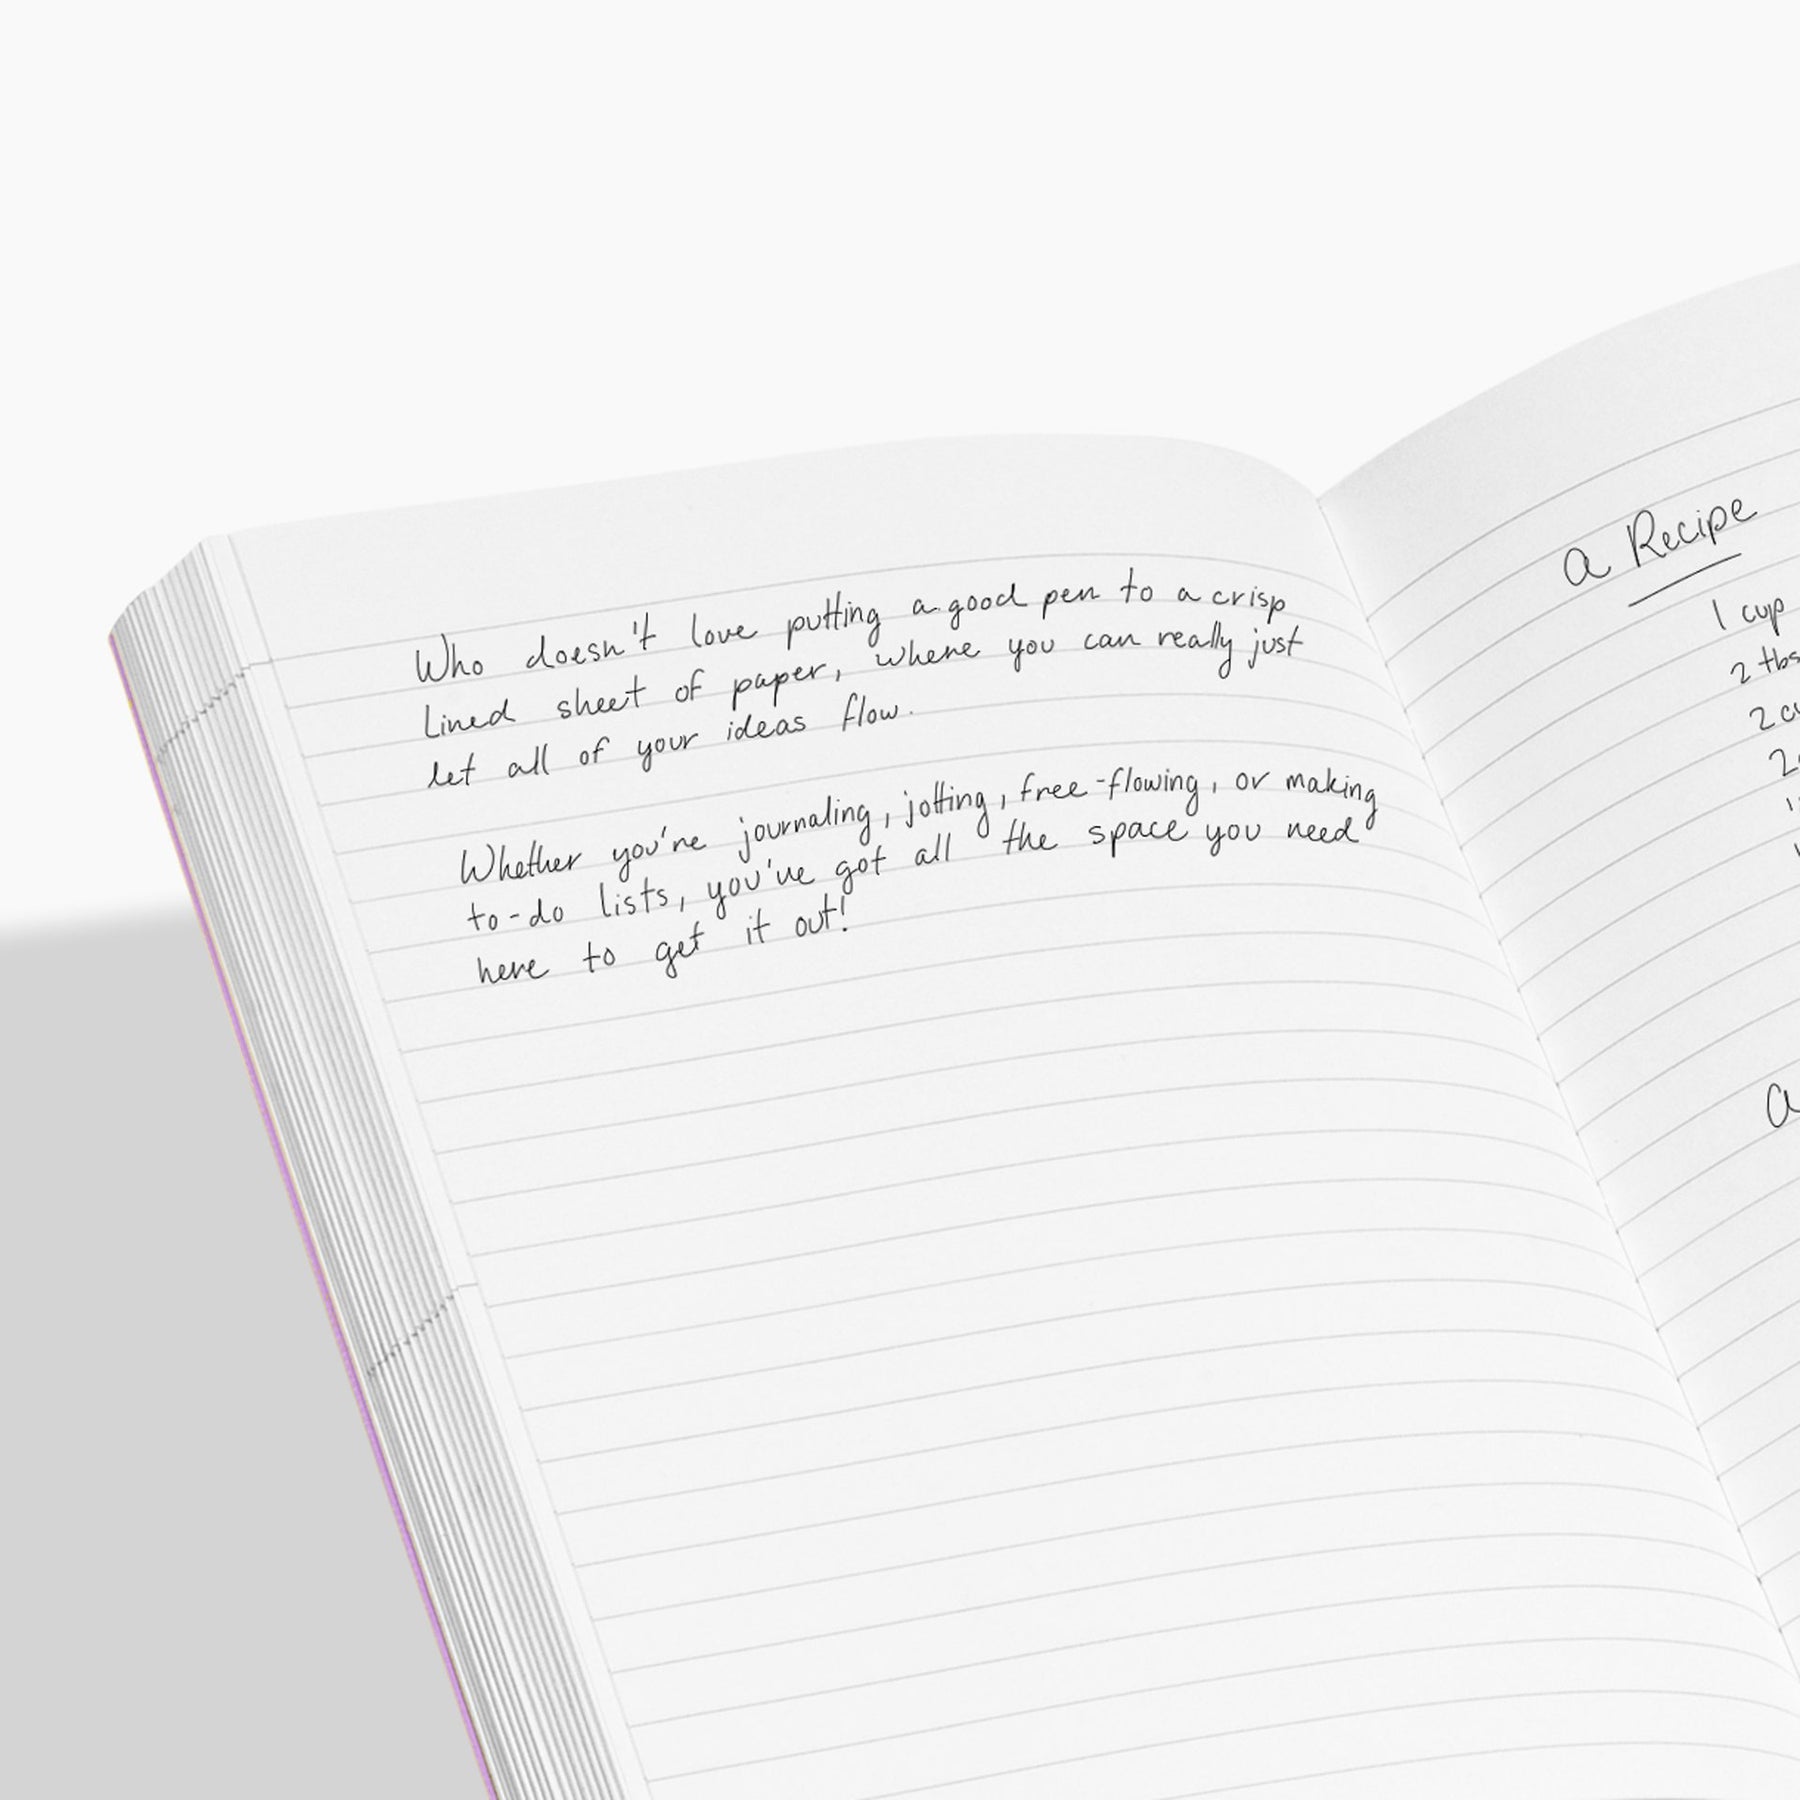 Who doesn't love putting a good pen to a crisp
Lined sheet of paper, where you can really just
let all of your ideas flow.
Whether you're journaling, jotting, free-flowing, or making
to-do lists, you've got all the space you need
here to get it out!
a Recipe
1 cup
2 tbs
2
2
a